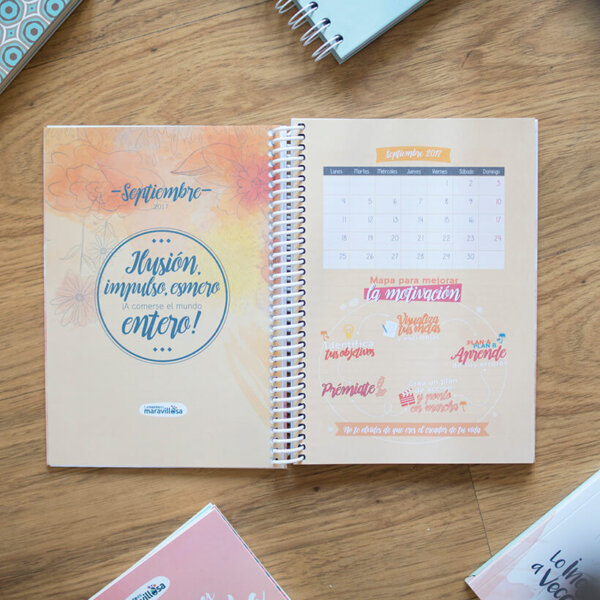 -Septiembre-
2017
Ilusión,
impulso, esmero
¡A comerse el mundo
entero!
maravillosa
Septiembre 2017
Lunes Martes Miércoles Jueves Viernes Sábado Domingo
1 2 3
4 5 6 7 8 9 10
11 12 13 14 15 16 17
18 19 20 21 22 23 24
25 26 27 28 29 30
Mapa para mejorar
la motivación
Visualiza
tus metas
Identifica
tus objetivos
PLAN A
PLAN B
Aprende
de los errores
Prémiate
Crea un plan
y ponlo
en marcha
No te olvides de que eres el creador de tu vida
maravillosa
Lo
a